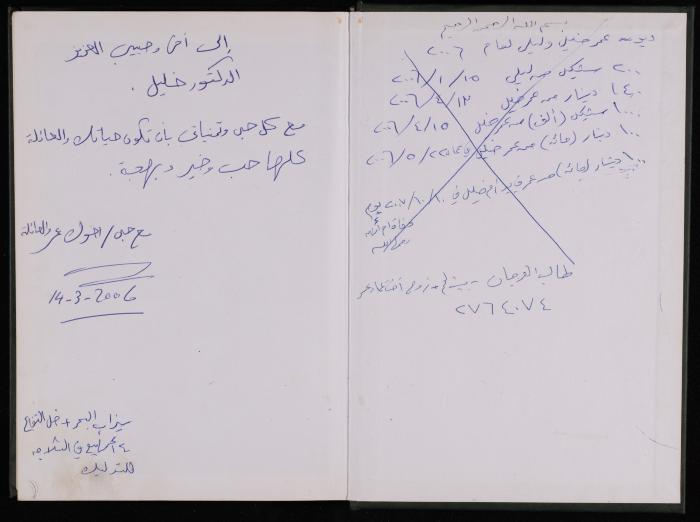 إلى أخي وحبيبي العزيز
الدكتور خليل.
مع كل حبي وتمنياتي بأن تكون حياتك والعائلة
كلها حب وخير وبهجة.
مع حبي / أخوك عمر والعائلة
14-3-2006
البحر + خل التفاح
٤ أسابيع في الثلاجة
للتدليك
بسم الله الرحمن الرحيم
ديون عمر خليل وليلى لعام ٢٠٠٦
٢٠٠ شيكل من ليلى ٢٠٠٦/١/١٥
١٤٠ دينار من عمر خليل ٢٠٠٦/٤/١٢
١٠٠٠ شيكل (ألف) من عمر خليل ٢٠٠٦/٤/١٥
١٠٠ دينار (مائة) من عمر خليل ٢٠٠٦/٥/٢٥
١٠٠ دينار (مائة) من عمر أم خليل في ٢٠٠٧/١٠/١٠ يوم
وفاة
رحمها الله
طالب - زوج أخت عمر
٢٧٦٤٠٧٤